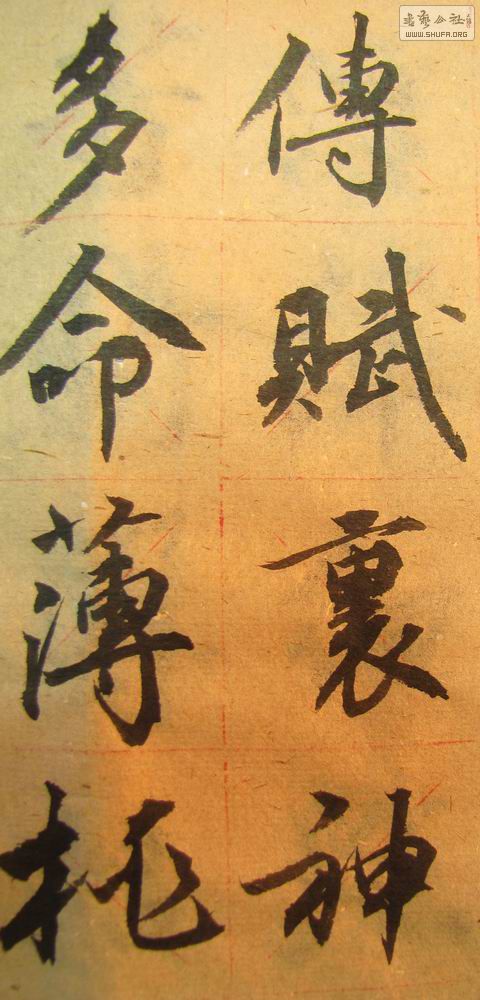 傳賦裏神
多命薄托
書藝公社
WWW.SHUFA.ORG